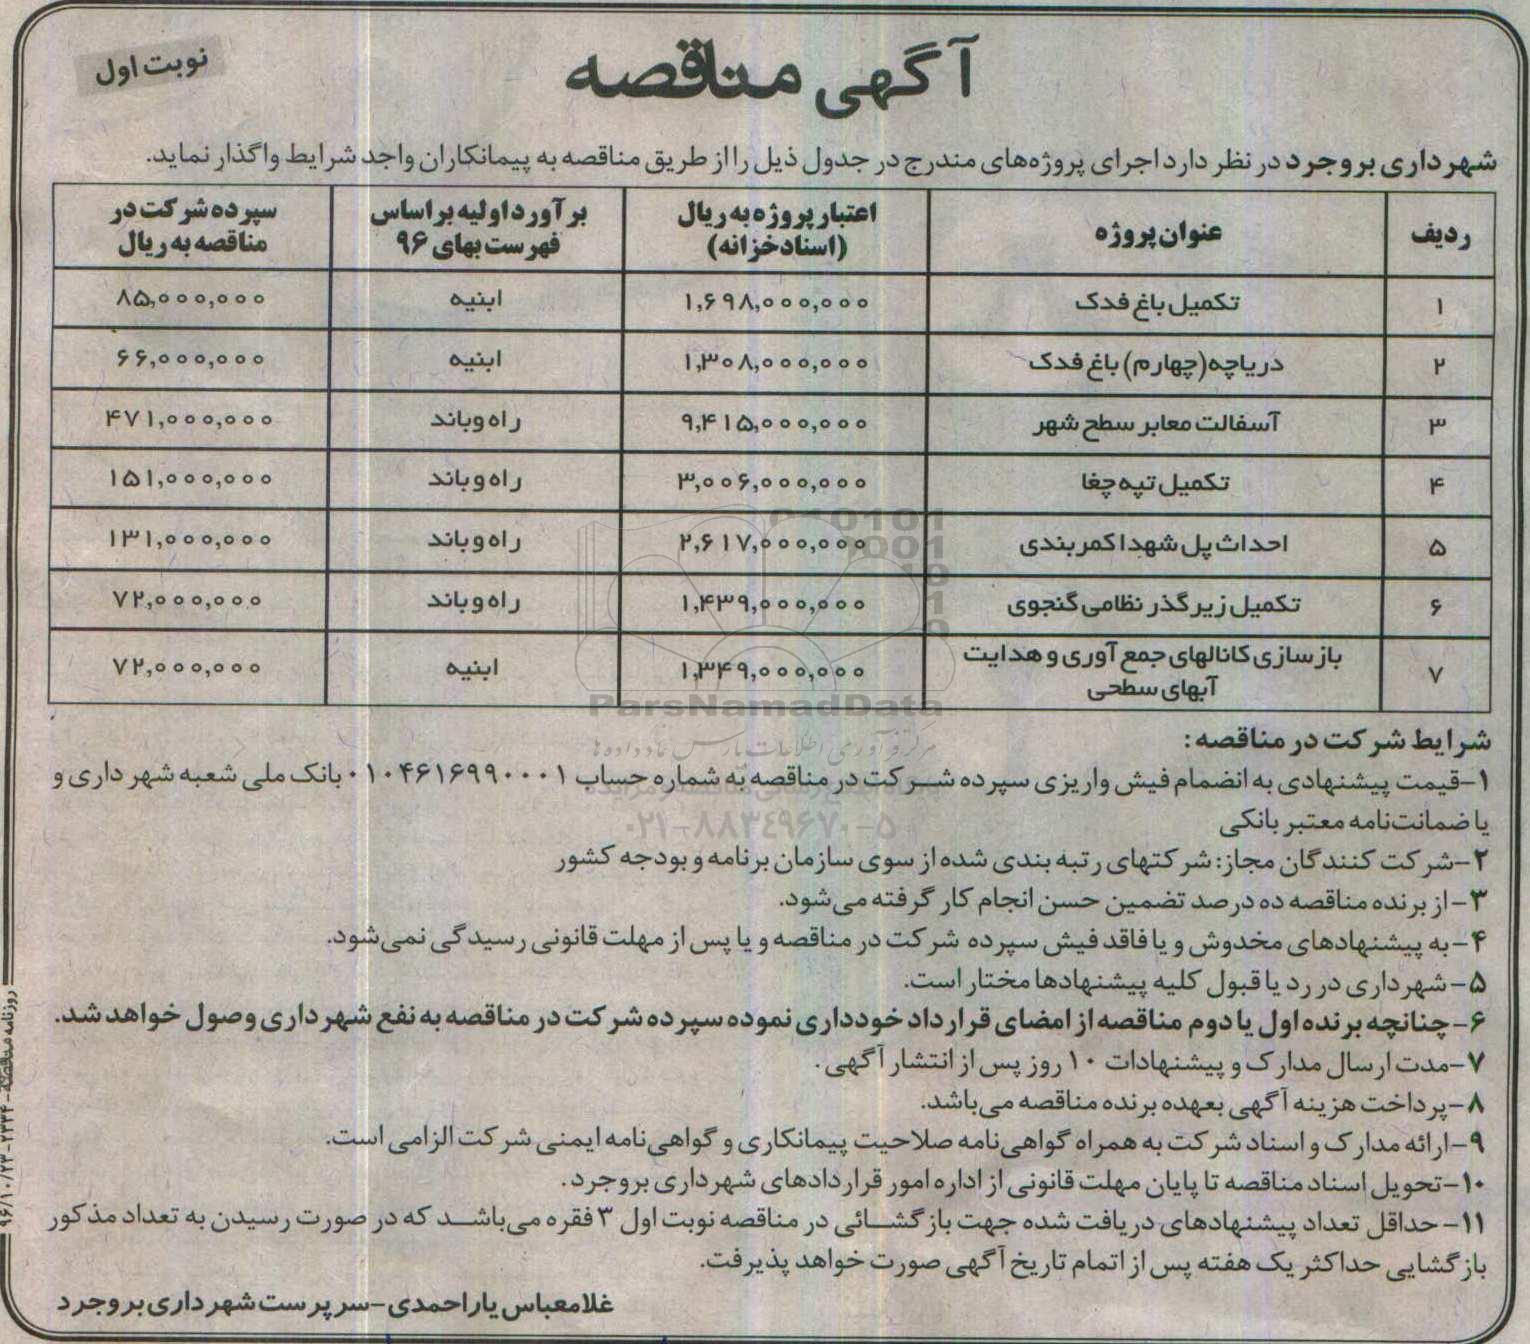 آگهی مناقصه
نوبت اول
شهرداری بروجرد در نظر دارد اجرای پروژه‌های مندرج در جدول ذیل را از طریق مناقصه به پیمانکاران واجد شرایط واگذار نماید.
ردیف | عنوان پروژه | اعتبار پروژه به ریال (اسناد خزانه) | برآورد اولیه بر اساس فهرست بهای ۹۶ | سپرده شرکت در مناقصه به ریال
۱ | تکمیل باغ فدک | ۱,۶۹۸,۰۰۰,۰۰۰ | ابنیه | ۸۵,۰۰۰,۰۰۰
۲ | دریاچه (چهارم) باغ فدک | ۱,۳۰۸,۰۰۰,۰۰۰ | ابنیه | ۶۶,۰۰۰,۰۰۰
۳ | آسفالت معابر سطح شهر | ۹,۴۱۵,۰۰۰,۰۰۰ | راه و باند | ۴۷۱,۰۰۰,۰۰۰
۴ | تکمیل تپه چغا | ۳,۰۰۶,۰۰۰,۰۰۰ | راه و باند | ۱۵۱,۰۰۰,۰۰۰
۵ | احداث پل شهدا کمربندی | ۲,۶۱۷,۰۰۰,۰۰۰ | راه و باند | ۱۳۱,۰۰۰,۰۰۰
۶ | تکمیل زیرگذر نظامی گنجوی | ۱,۴۳۹,۰۰۰,۰۰۰ | راه و باند | ۷۲,۰۰۰,۰۰۰
۷ | بازسازی کانالهای جمع آوری و هدایت آبهای سطحی | ۱,۳۴۹,۰۰۰,۰۰۰ | ابنیه | ۷۲,۰۰۰,۰۰۰
ParsNamadData
مرکز فرآوری اطلاعات پارس نماد داده ها
۰۲۱-۸۸۳۴۹۶۷۰-۵
شرایط شرکت در مناقصه:
۱-قیمت پیشنهادی به انضمام فیش واریزی سپرده شرکت در مناقصه به شماره حساب ۰۱۰۴۶۱۶۹۹۰۰۰۱ بانک ملی شعبه شهرداری و
یا ضمانت‌نامه معتبر بانکی
۲-شرکت کنندگان مجاز: شرکتهای رتبه بندی شده از سوی سازمان برنامه و بودجه کشور
۳-از برنده مناقصه ده درصد تضمین حسن انجام کار گرفته می‌شود.
۴-به پیشنهادهای مخدوش و یا فاقد فیش سپرده شرکت در مناقصه و یا پس از مهلت قانونی رسیدگی نمی‌شود.
۵-شهرداری در رد یا قبول کلیه پیشنهادها مختار است.
۶-چنانچه برنده اول یا دوم مناقصه از امضای قرارداد خودداری نموده سپرده شرکت در مناقصه به نفع شهرداری وصول خواهد شد.
۷-مدت ارسال مدارک و پیشنهادات ۱۰ روز پس از انتشار آگهی.
۸-پرداخت هزینه آگهی بعهده برنده مناقصه می‌باشد.
۹-ارائه مدارک و اسناد شرکت به همراه گواهی‌نامه صلاحیت پیمانکاری و گواهی‌نامه ایمنی شرکت الزامی است.
۱۰-تحویل اسناد مناقصه تا پایان مهلت قانونی از اداره امور قراردادهای شهرداری بروجرد.
۱۱-حداقل تعداد پیشنهادهای دریافت شده جهت بازگشائی در مناقصه نوبت اول ۳ فقره می‌باشد که در صورت رسیدن به تعداد مذکور
بازگشایی حداکثر یک هفته پس از اتمام تاریخ آگهی صورت خواهد پذیرفت.
غلامعباس یاراحمدی-سرپرست شهرداری بروجرد
روزنامه مناقصه-۲۳۳۴-۹۶/۱۰/۲۳